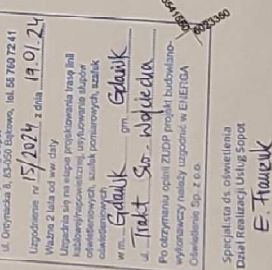 ul. Ordynacka 8, 83-050 Bąkowo, tel. 58 760 72 41
Uzgodnienie nr 15/2024 z dnia 19.01.24
Ważne 2 lata od ww. daty
Uzgadnia się na etapie projektowania trasę linii
kablowej/napowietrznej, usytuowania słupów
oświetleniowych, szafek pomiarowych, szafek
oświetleniowych
w m. Gdańsk gm. Gdańsk
ul. Trakt Św. Wojciecha
Po otrzymaniu opinii ZUDP projekt budowlano-
wykonawczy należy uzgodnić w ENERGA
Oświetlenie Sp. z o.o.
Specjalista ds. oświetlenia
Dział Realizacji Usług Sopot
E.